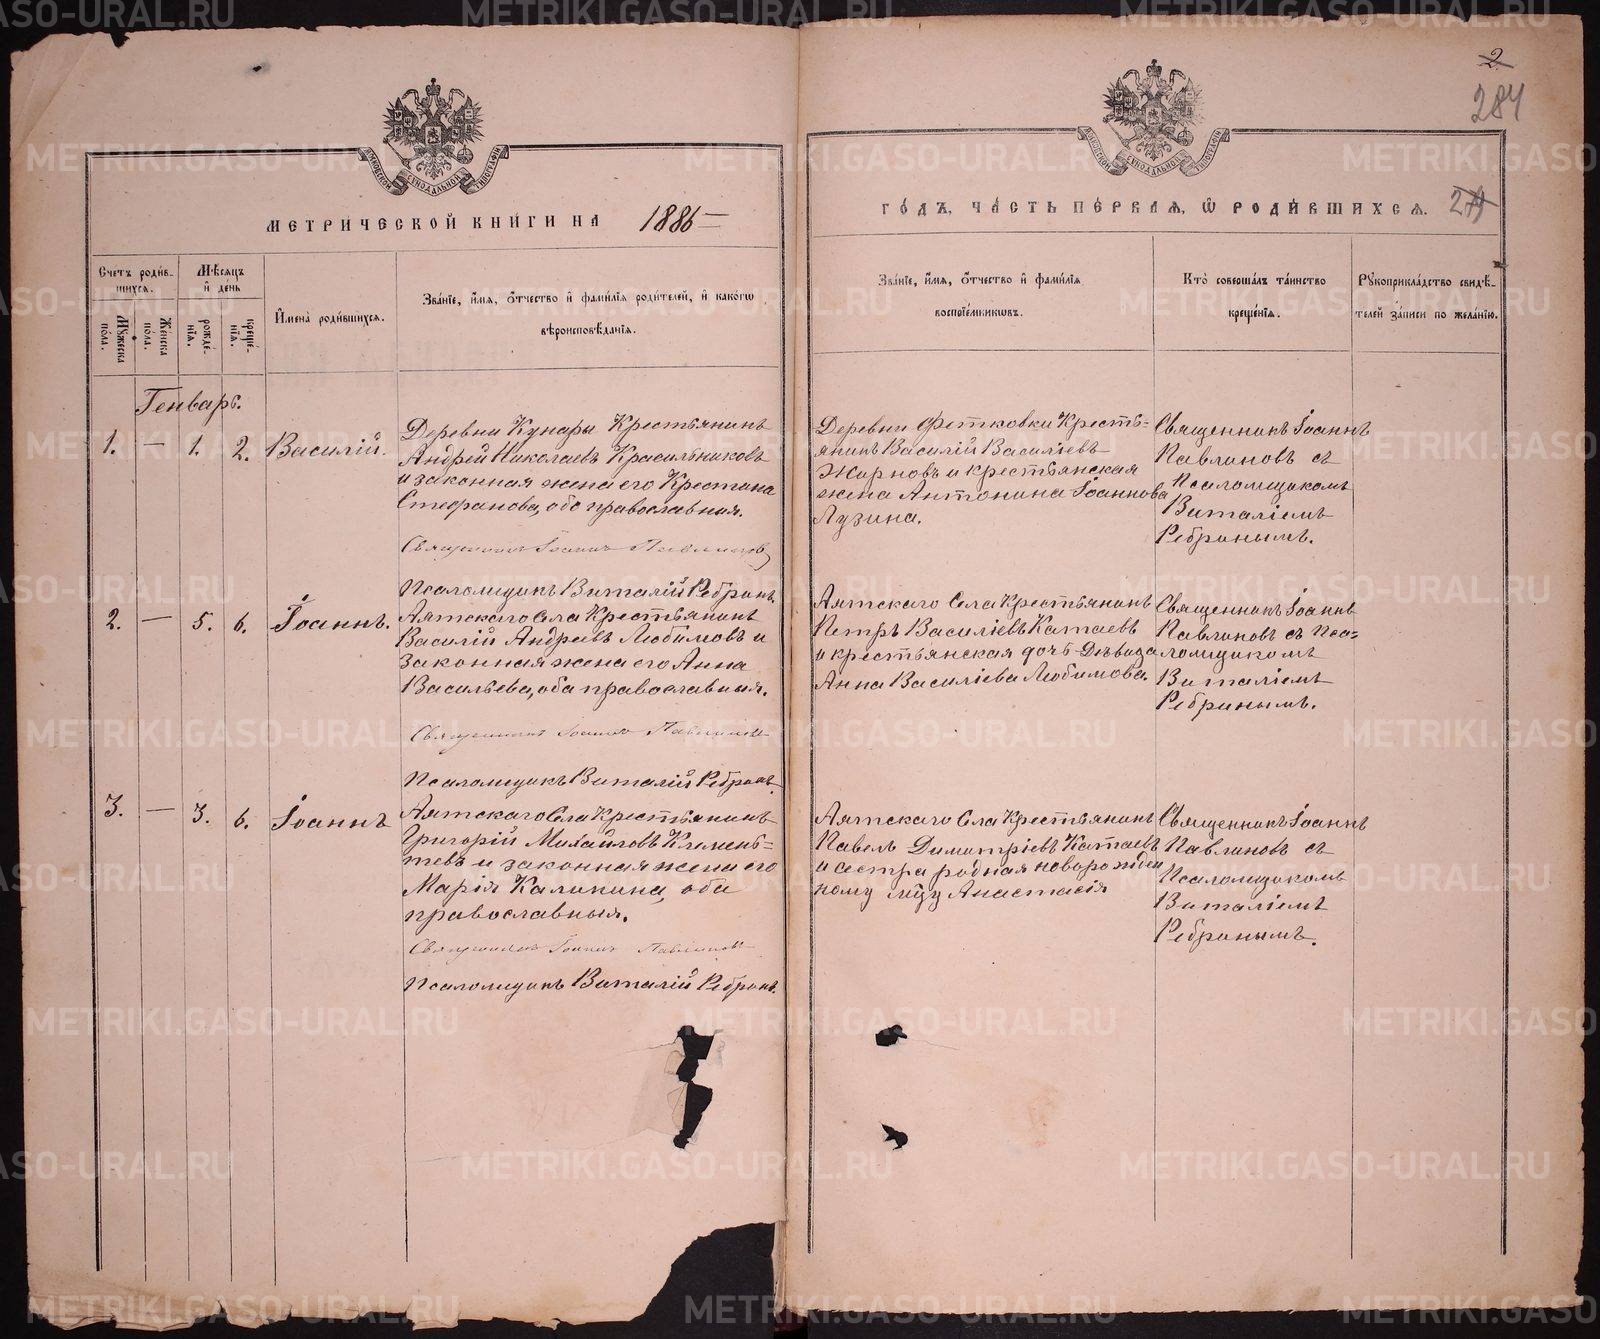 2
284
МОСКОВСКОЙ СѴНОДАЛЬНОЙ ТИПОГРАФІИ
МОСКОВСКОЙ СѴНОДАЛЬНОЙ ТИПОГРАФІИ
МЕТРИЧЕСКОЙ КНИГИ НА 1886
ГОДЪ, ЧАСТЬ ПЕРВАЯ, Ѡ РОДИВШИХСЯ.
Счетъ родив-
шихся.
Мѣсяцъ
и день
Мꙋжеска
пола.
Женска
пола.
рожде-
нїѧ.
креще-
нїѧ.
Имена родившихсѧ.
Званїе, имѧ, ѻтчество и фамилїѧ родителей, и какогѡ
вѣроисповѣданїѧ.
Званїе, имѧ, ѻтчество и фамилїѧ
воспрїемникѡвъ.
Кто совершалъ таинство
крещенїѧ.
Рꙋкоприкладство свидѣ-
телей записи по желанїю.
Генварь.
1. — 1. 2. Василій.
Деревни Кунары Крестьянинъ
Андрей Николаевъ Красильниковъ
и законная жена его Крестина
Стефанова, обо православныя.
Священникъ Іоаннъ Павлиновъ
Псаломщикъ Виталій Ребринъ.
Деревни Фетковки Кресть=
янинъ Василій Василіевъ
Жирновъ и крестьянская
жена Антонина Іоаннова
Лузина.
Священникъ Іоаннъ
Павлиновъ съ
Псаломщикомъ
Виталіемъ
Ребринымъ.
2. — 5. 6. Іоаннъ.
Аятскаго Села Крестьянинъ
Василій Андреевъ Любимовъ и
законная жена его Анна
Васильева, оба православныя.
Священникъ Іоаннъ Павлиновъ
Псаломщикъ Виталій Ребринъ.
Аятскаго Села Крестьянинъ
Петръ Василіевъ Катаевъ
и крестьянская дочь-дѣвица
Анна Василіева Любимова.
Священникъ Іоаннъ
Павлиновъ съ Пса=
ломщикомъ
Виталіемъ
Ребринымъ.
3. — 3. 6. Іоаннъ
Аятскаго Села Крестьянинъ
Григорій Михайловъ Клемень=
тевъ и законная жена его
Марія Калинина, оба
православныя.
Священникъ Іоаннъ Павлиновъ
Псаломщикъ Виталій Ребринъ.
Аятскаго Села Крестьянинъ
Павелъ Димитріевъ Катаевъ
и сестра родная новорожден
ному Анастасія
Священникъ Іоаннъ
Павлиновъ съ
Псаломщикомъ
Виталіемъ
Ребринымъ.
METRIKI.GASO-URAL.RU